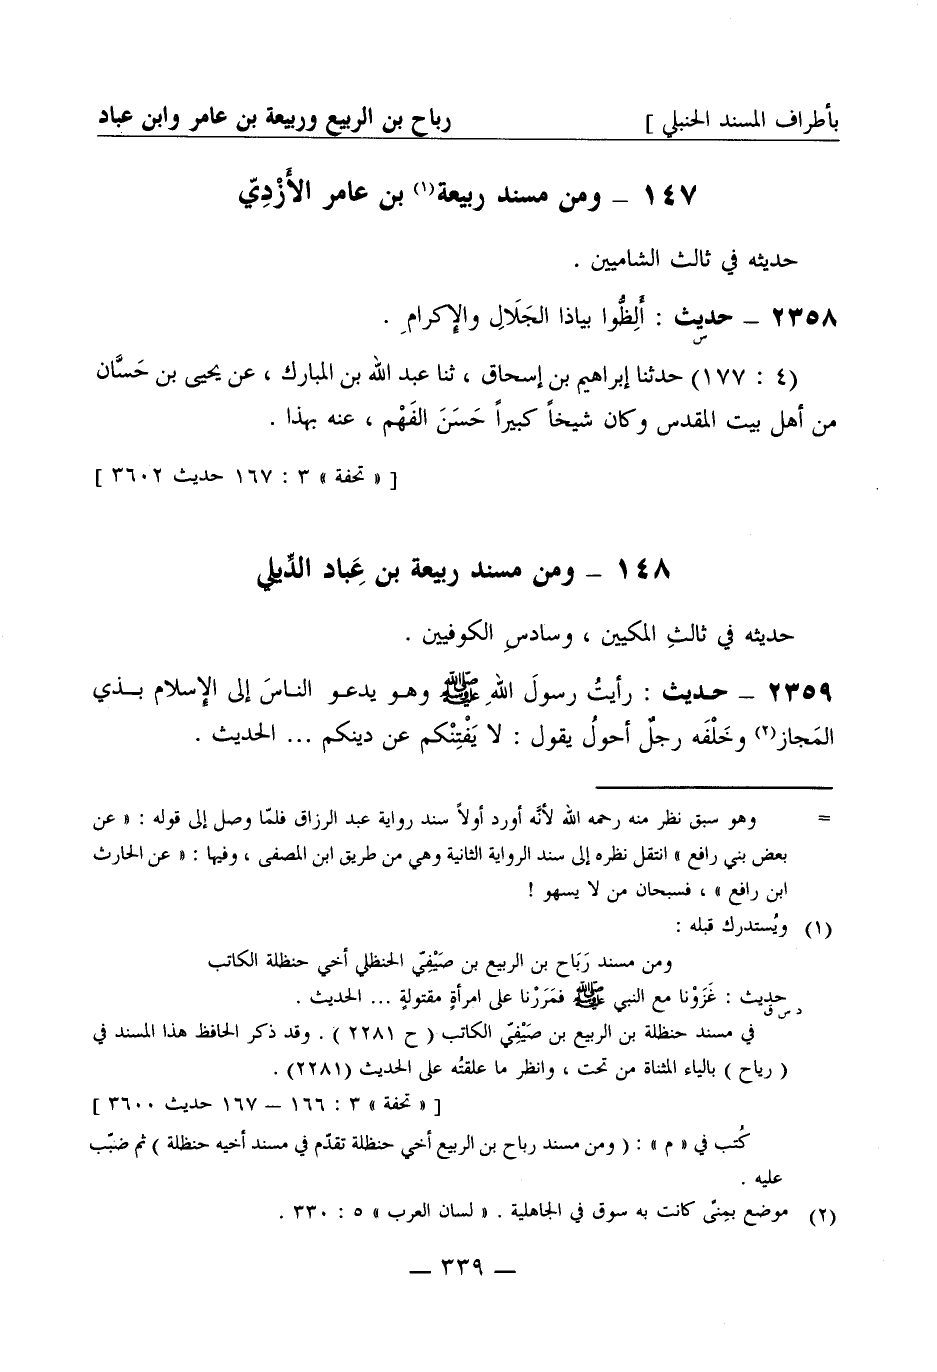 بأطراف المسند الحنبلي ] رباح بن الربيع وربيعة بن عامر وابن عباد
١٤٧ ــ ومن مسند ربيعة(١) بن عامر الأَزْدِيّ
حديثه في ثالث الشاميين .
٢٣٥٨ ــ حديث : أَلِظُّوا بياذا الجَلَالِ والإكرامِ .
س
(٤ : ١٧٧) حدثنا إبراهيم بن إسحاق ، ثنا عبد الله بن المبارك ، عن يحيى بن حَسَّان
من أهل بيت المقدس وكان شيخاً كبيراً حَسَنَ الفَهْم ، عنه بهذا .
[ « تحفة » ٣ : ١٦٧ حديث ٣٦٠٢ ]
١٤٨ ــ ومن مسند ربيعة بن عِباد الدِّيلي
حديثه في ثالثِ المكيين ، وسادسِ الكوفيين .
٢٣٥٩ ــ حديث : رأيتُ رسولَ اللهِ ﷺ وهو يدعو الناسَ إلى الإسلام بذي
المَجاز(٢) وخَلْفَه رجلٌ أحولُ يقول : لا يَفْتِنْكم عن دينكم ... الحديث .
= وهو سبق نظر منه رحمه الله لأنَّه أورد أولاً سند رواية عبد الرزاق فلمّا وصل إلى قوله : « عن
بعض بني رافع » انتقل نظره إلى سند الرواية الثانية وهي من طريق ابن المصفى ، وفيها : « عن الحارث
ابن رافع » ، فسبحان من لا يسهو !
(١) ويُستدرك قبله :
ومن مسند رَبَاح بن الربيع بن صَيْفِيّ الحنظلي أخي حنظلة الكاتب
حديث : غَزَوْنا مع النبي ﷺ فمَرَرْنا على امرأةٍ مقتولةٍ ... الحديث .
د س ق
في مسند حنظلة بن الربيع بن صَيْفِيّ الكاتب ( ح ٢٢٨١ ) . وقد ذكر الحافظ هذا المسند في
( رياح ) بالياء المثناة من تحت ، وانظر ما علقتُه على الحديث (٢٢٨١) .
[ « تحفة » ٣ : ١٦٦ ــ ١٦٧ حديث ٣٦٠٠ ]
كُتب في « م » : ( ومن مسند رباح بن الربيع أخي حنظلة تقدّم في مسند أخيه حنظلة ) ثم ضبّب
عليه .
(٢) موضع بمِنىً كانت به سوق في الجاهلية . « لسان العرب » ٥ : ٣٣٠ .
ــ ٣٣٩ ــ